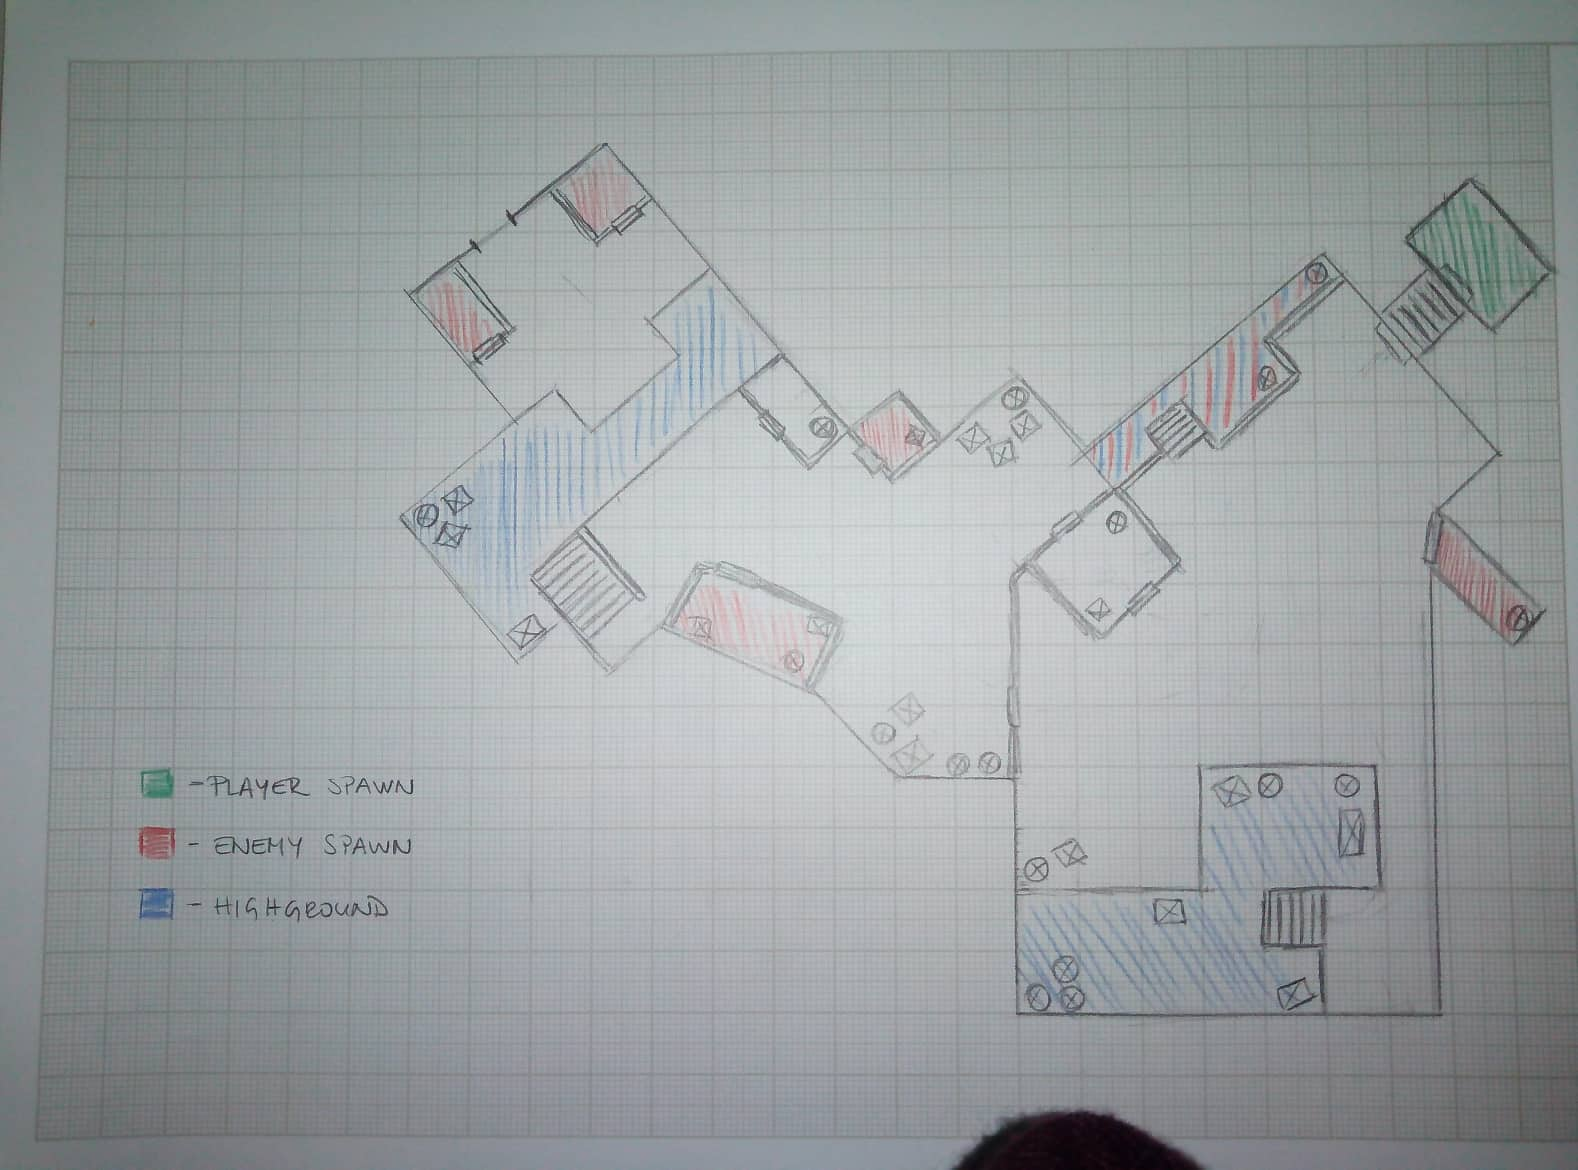 - PLAYER SPAWN
- ENEMY SPAWN
- HIGHGROUND